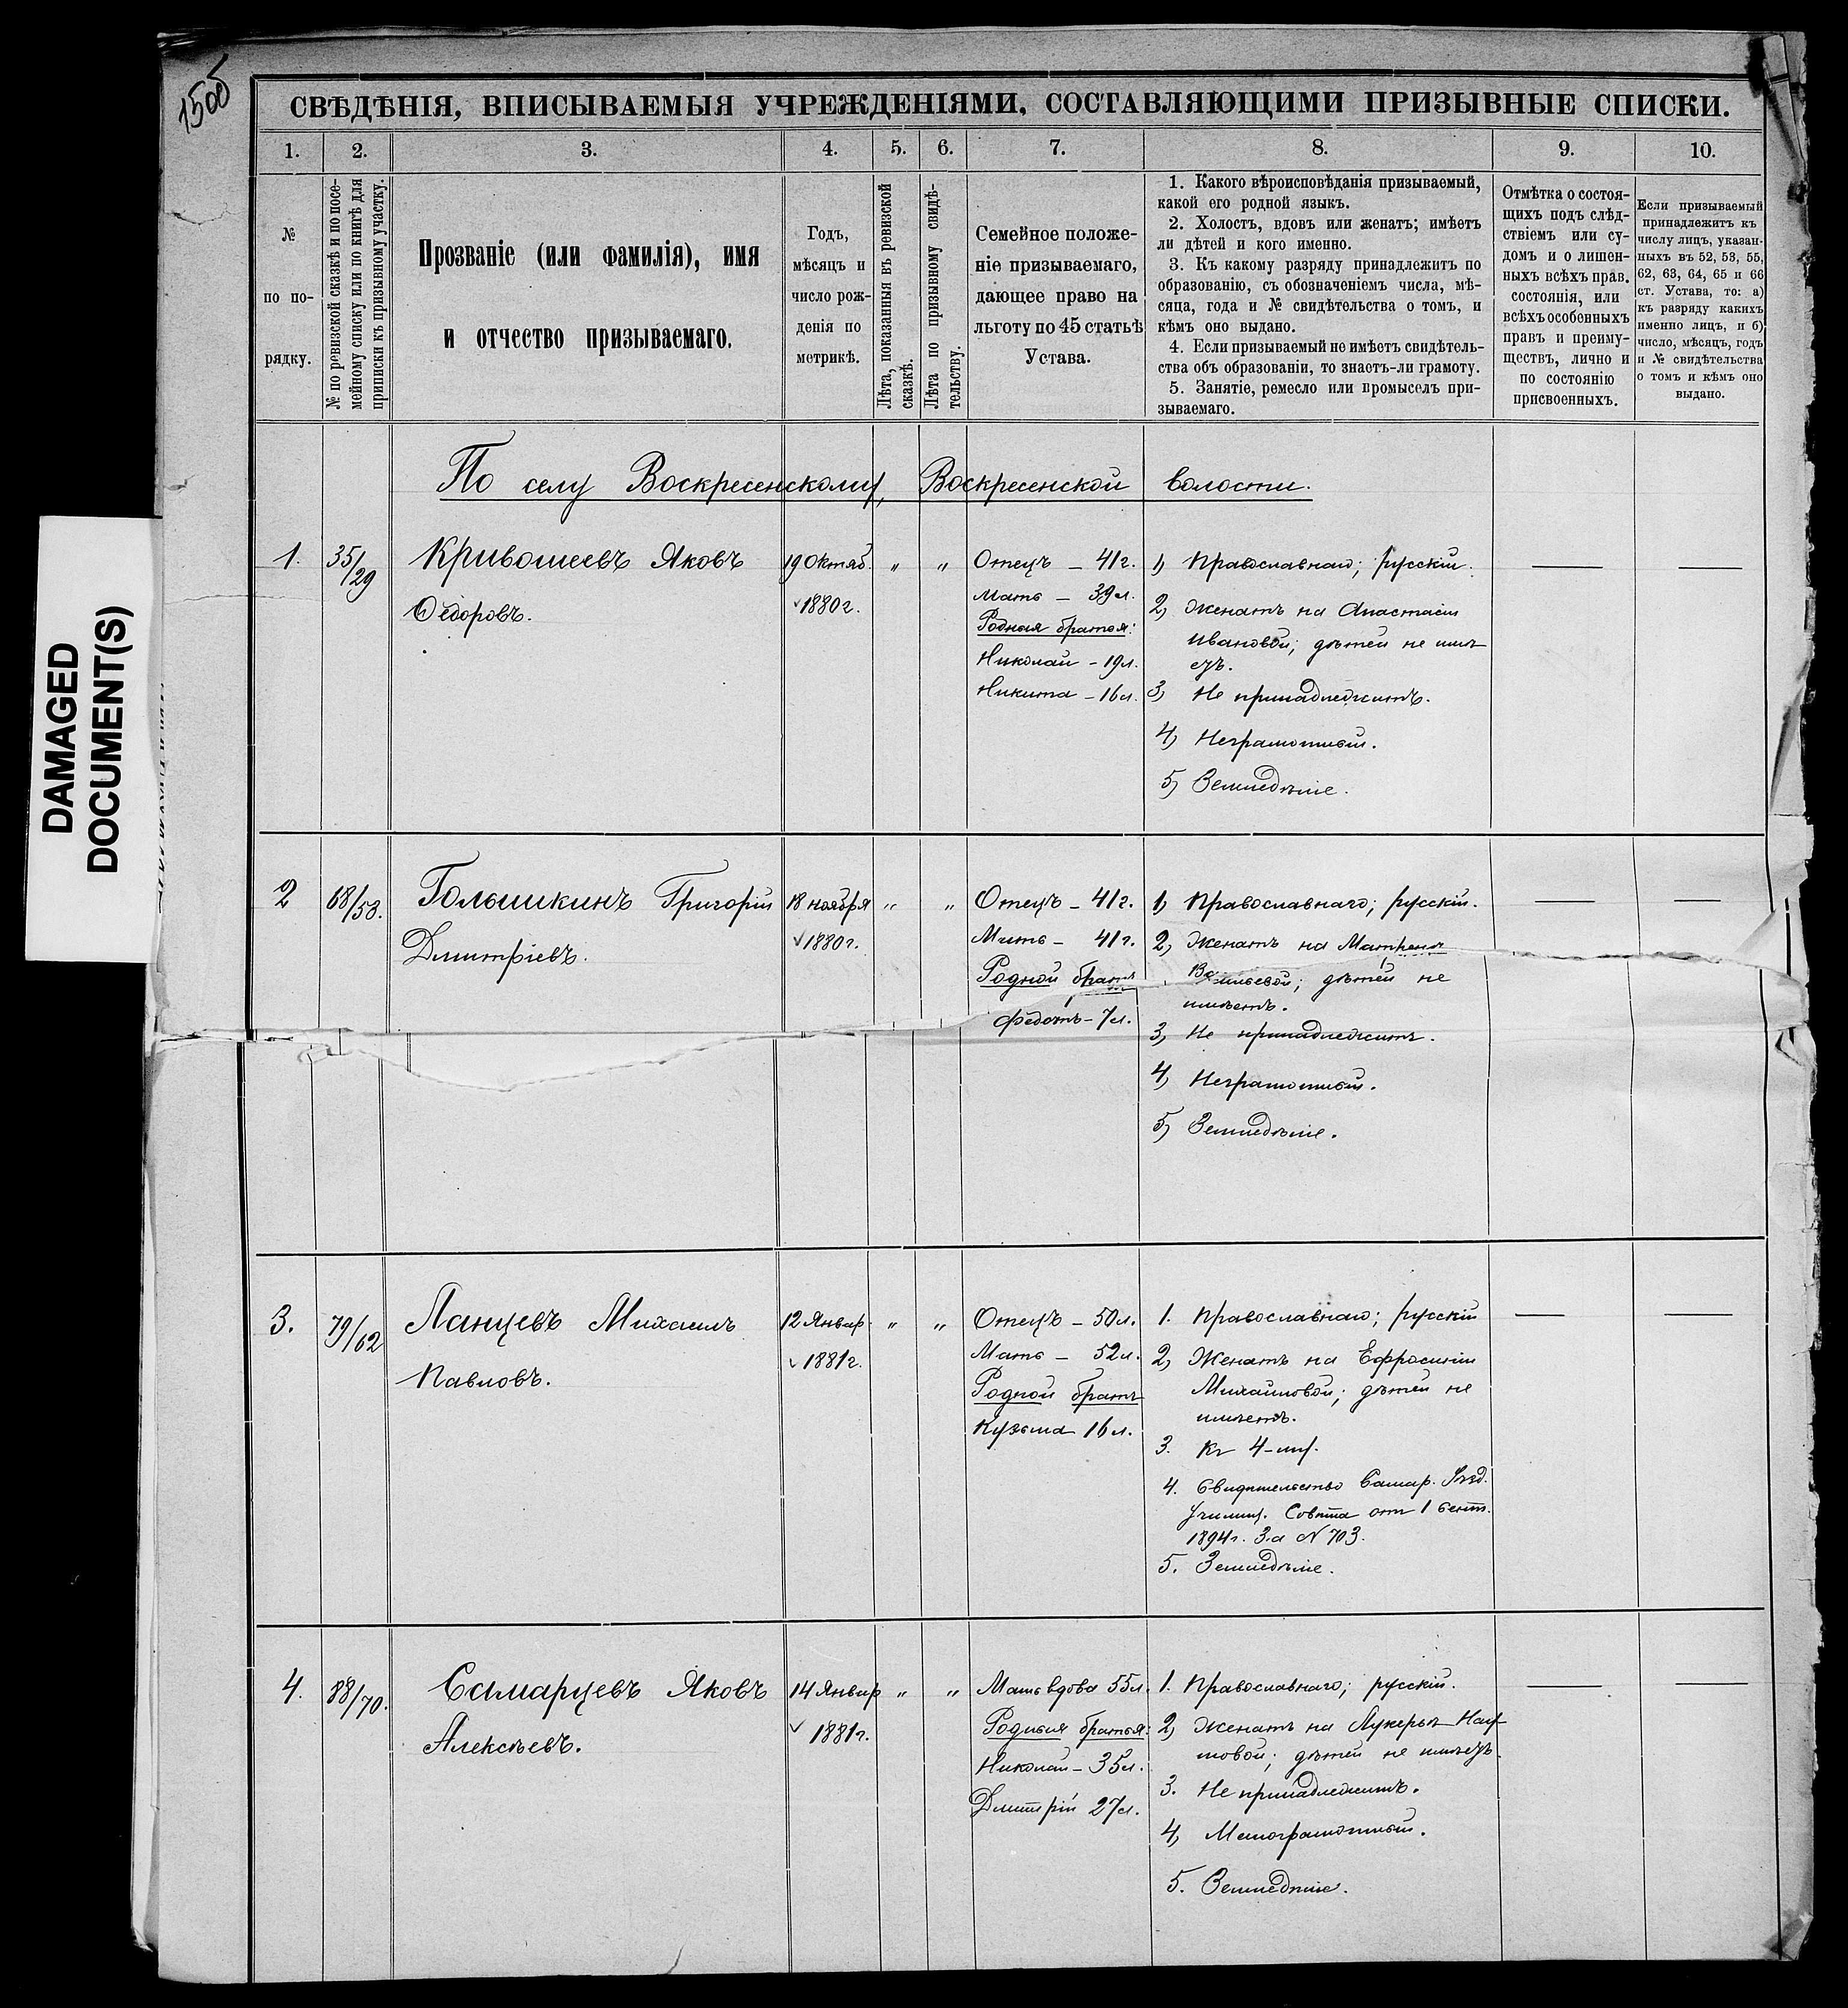 1500
DAMAGED
DOCUMENT(S)
СВѢДѢНІЯ, ВПИСЫВАЕМЫЯ УЧРЕЖДЕНІЯМИ, СОСТАВЛЯЮЩИМИ ПРИЗЫВНЫЕ СПИСКИ.
1. 2. 3. 4. 5. 6. 7. 8. 9. 10.
№
по по-
рядку.
№ по ревизской сказкѣ и по посе-
мейному списку или по книгѣ для
приписки къ призывному участку.
Прозваніе (или фамилія), имя
и отчество призываемаго.
Годъ,
мѣсяцъ и
число рож-
денія по
метрикѣ.
Лѣта, показанныя въ ревизской
сказкѣ.
Лѣта по призывному свидѣ-
тельству.
Семейное положе-
ніе призываемаго,
дающее право на
льготу по 45 статьѣ
Устава.
1. Какого вѣроисповѣданія призываемый,
какой его родной языкъ.
2. Холостъ, вдовъ или женатъ; имѣетъ
ли дѣтей и кого именно.
3. Къ какому разряду принадлежитъ по
образованію, съ обозначеніемъ числа, мѣ-
сяца, года и № свидѣтельства о томъ, и
кѣмъ оно выдано.
4. Если призываемый не имѣетъ свидѣтель-
ства объ образованіи, то знаетъ-ли грамоту.
5. Занятіе, ремесло или промыселъ при-
зываемаго.
Отмѣтка о состоя-
щихъ подъ слѣд-
ствіемъ или су-
домъ и о лишен-
ныхъ всѣхъ прав.
состоянія, или
всѣхъ особенныхъ
правъ и преиму-
ществъ, лично и
по состоянію
присвоенныхъ.
Если призываемый
принадлежитъ къ
числу лицъ, указан-
ныхъ въ 52, 53, 55,
62, 63, 64, 65 и 66
ст. Устава, то: а)
къ разряду какихъ
именно лицъ, и б)
число, мѣсяцъ, годъ
и № свидѣтельства
о томъ и кѣмъ оно
выдано.
По селу Воскресенскому, Воскресенской волости.
1. 35/29
Кривошеевъ Яковъ
Ѳедоровъ.
19 Октяб.
1880 г.
" "
Отецъ - 41 г.
Мать - 39 л.
Родныя братья:
Николай - 19 л.
Никита - 16 л.
1, Православнаго; русскій.
2, Женатъ на Анастасіи
Ивановой; дѣтей не имѣ
етъ.
3, Не принадлежитъ.
4, Неграмотный.
5, Земледѣліе.
2 68/53.
Голышкинъ Григорій
Дмитріевъ.
18 ноября
1880 г.
" "
Отецъ - 41 г.
Мать - 41 г.
Родной братъ
Федотъ - 7 л.
1, Православнаго; русскій.
2, Женатъ на Матренѣ
Васильевой; дѣтей не
имѣетъ.
3, Не принадлежитъ.
4, Неграмотный.
5, Земледѣліе.
3. 79/62
Ланцевъ Михаилъ
Павловъ.
12 Январ.
1881 г.
" "
Отецъ - 50 л.
Мать - 52 л.
Родной братъ
Кузьма 16 л.
1. Православнаго; русскій
2, Женатъ на Ефросиніи
Михайловой; дѣтей не
имѣетъ.
3. Къ 4-му.
4. Свидѣтельство Самар. Уѣзд.
Училищ. Совѣта отъ 1 Сент.
1894 г. За № 703.
5. Земледѣліе.
4. 88/70.
Самарцевъ Яковъ
Алексѣевъ.
14 Январ
1881 г.
" "
Мать вдова 55 л.
Родныя братья:
Николай - 35 л.
Дмитрій 27 л.
1. Православнаго; русскій.
2, Женатъ на Лукерьѣ Нау
мовой; дѣтей не имѣетъ.
3. Не принадлежитъ.
4, Малограмотный.
5. Земледѣліе.